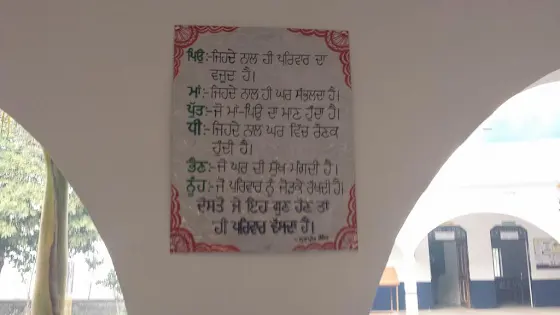 ਪਿਉ:-ਜਿਹਦੇ ਨਾਲ ਹੀ ਪਰਿਵਾਰ ਦਾ
ਵਜੂਦ ਹੈ।
ਮਾਂ:-ਜਿਹਦੇ ਨਾਲ ਹੀ ਘਰ ਸੰਭਲਦਾ ਹੈ।
ਪੁੱਤ:-ਜੋ ਮਾਂ-ਪਿਉ ਦਾ ਮਾਣ ਹੁੰਦਾ ਹੈ।
ਧੀ:-ਜਿਹਦੇ ਨਾਲ ਘਰ ਵਿੱਚ ਰੌਣਕ
ਹੁੰਦੀ ਹੈ।
ਭੈਣ:-ਜੋ ਘਰ ਦੀ ਸੁੱਖ ਮੰਗਦੀ ਹੈ।
ਨੂੰਹ:-ਜੋ ਪਰਿਵਾਰ ਨੂੰ ਜੋੜਕੇ ਰੱਖਦੀ ਹੈ।
ਦੋਸਤੋ ਜੇ ਇਹ ਗੁਣ ਹੋਣ ਤਾਂ
ਹੀ ਪਰਿਵਾਰ ਵੱਸਦਾ ਹੈ।